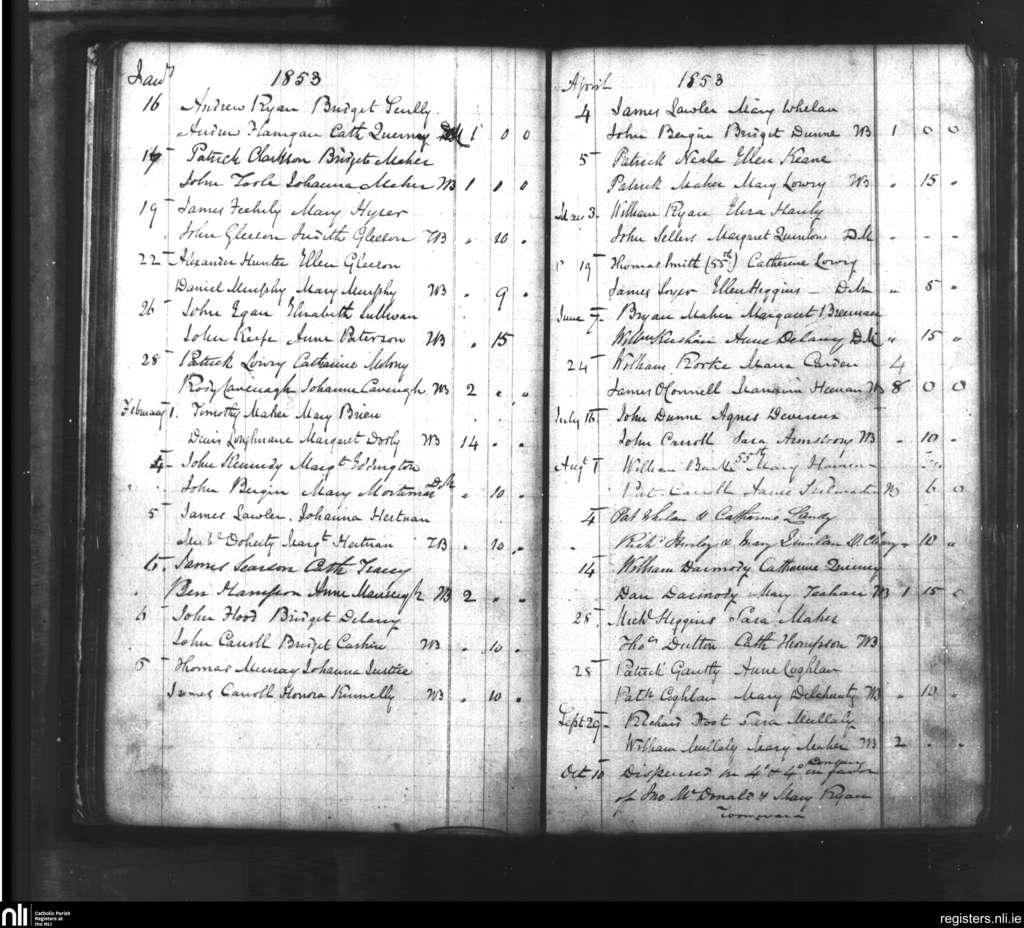 Jany 1853
16 Andrew Ryan Bridget Scully
Andrew Flanigan Cath DM 1 0 0
17 Patrick Clarkson Bridget Maher
John Toole Johanna Maher WB 1 0 0
19 James Feehily Mary
John Gleeson Judith Gleeson WB " 10 "
22 Alexander Hunter Ellen Gleeson
Daniel Murphy Mary Murphy WB " 9 "
26 John Egan Elizabeth Sullivan
John Keefe Anne Paterson WB " 15
28 Patrick Lowry Catharine Molony
Rody Cavenagh Johanna Cavengh WB 2 " "
February 1. Timothy Maher Mary Brien
Denis Margaret Dooly WB 14 " "
4 John Kennedy Margt Eddington
John Bergin Mary DM " 10 "
5 James Lawler. Johanna Hertnan
Doherty Margt Hertnan WB " 10 "
6. James Cath Treacy
Ben Hampson Anne WB 2 " "
6 John Hood Bridget Delany
John Carroll Bridget WB " 10 "
6 Thomas Murray Johanna
James Carroll Honora Kennelly WB " 10 "
April 1853
4 James Lawler Mary Whelan
John Bergin Bridget Dunne WB 1 0 0
5 Patrick Neale Ellen Keane
Patrick Maher Mary Lowry WB " 15 "
3. William Ryan Eliza Hanly
John Sellers Margaret Quinlan DM - - -
19 Thomas Smith (55th) Catherine Lowry
James Ellen Heggins - DM " 5 "
June 7. Bryan Maher Margaret Brennan
Anne Delany DM " 15 "
24 William Rorke Maria Carden 4
James O'Connell Heenan WB 8 0 0
July 16 John Dunne Agnes Devereux
John Carroll Sara Armstrong WB - 10 -
Augt 1 William Burke 55th Mary
Pat Carroll Anne 6 0
4 Pat Whelan & Catharine Landy
Richd Hurley & Mary Quinlan D. Cleary " 10 "
14 William Darmody Catharine
Dan Darmody Mary WB 1 15 0
28 Michl Heggins Sara Maher
Thos Dutton Cath Thompson WB
28 Patrick Anne Coghlan
Patk Coghlan Mary Delahunty WB " 10 "
Sept 29 Richard Sara Mullaly
William Mullaly Mary Maher WB 2 . .
Oct 10 Dispensed in 4o & 4o in favor
of Jno McDonald & Mary Ryan
Toomevara
nli Catholic Parish
Registers at
the NLI
registers.nli.ie